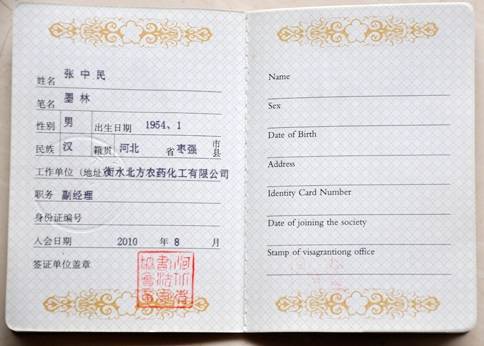 姓名 张中民
笔名 墨林
性别 男 出生日期 1954、1
民族 汉 籍贯 河北 省 枣强 市县
工作单位(地址)衡水北方农药化工有限公司
职务 副经理
身份证编号
入会日期 2010 年 8 月
签证单位盖章
Name
Sex
Date of Birth
Address
Identity Card Number
Date of joining the society
Stamp of visagrantiong office